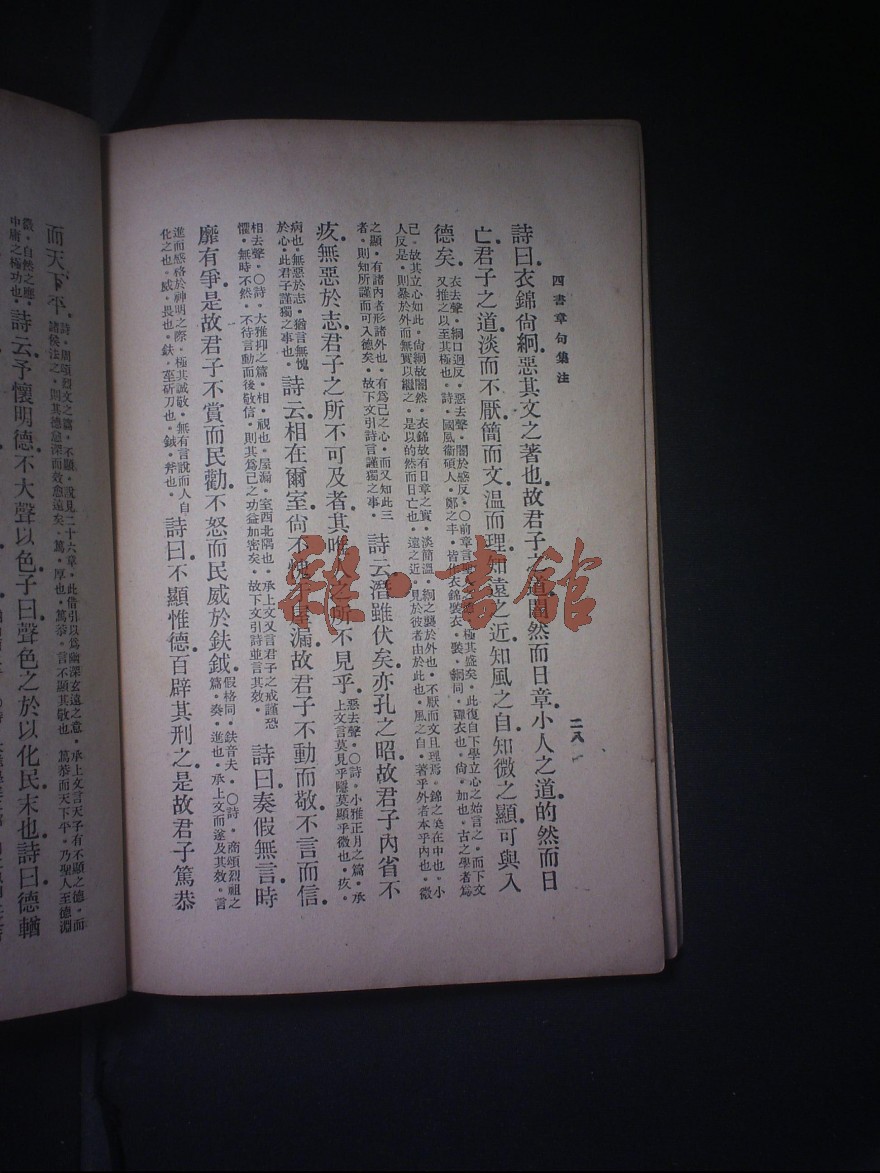 四書章句集注
二八
詩曰衣錦尙絅惡其文之著也故君子之道闇然而日章小人之道的然而日
亡君子之道淡而不厭簡而文溫而理知遠之近知風之自知微之顯可與入
德矣
衣去聲・絅口迥反・惡去聲・闇於感反・○前章言聖人之德・極其盛矣・此復自下學立心之始言之・而下文
又推之以至其極也・詩・國風衞碩人・鄭之丰・皆作衣錦褧衣・褧・絅同・禪衣也・尙・加也・古之學者爲
己・故其立心如此・尙絅故闇然・衣錦故有日章之實・淡簡溫・絅之襲於外也・不厭而文且理焉・錦之美在中也・小
人反是・則暴於外而無實以繼之・是以的然而日亡也・遠之近・見於彼者由於此也・風之自・著乎外者本乎內也・微
之顯・有諸內者形諸外也・有爲己之心・而又知此三
者・則知所謹而可入德矣・故下文引詩言謹獨之事・
詩云潛雖伏矣亦孔之昭故君子內省不
疚無惡於志君子之所不可及者其唯人之所不見乎
惡去聲・○詩・小雅正月之篇・承
上文言莫見乎隱莫顯乎微也・疚・
病也・無惡於志・猶言無愧
於心・此君子謹獨之事也・
詩云相在爾室尙不愧于屋漏故君子不動而敬不言而信
相去聲・○詩・大雅抑之篇・相・視也・屋漏・室西北隅也・承上文又言君子之戒謹恐
懼・無時不然・不待言動而後敬信・則其爲己之功益加密矣・故下文引詩並言其效・
詩曰奏假無言時
靡有爭是故君子不賞而民勸不怒而民威於鈇鉞
假格同・鈇音夫・○詩・商頌烈祖之
篇・奏・進也・承上文而遂及其效・言
進而感格於神明之際・極其誠敬・無有言說而人自
化之也・威・畏也・鈇・莝斫刀也・鉞・斧也・
詩曰不顯惟德百辟其刑之是故君子篤恭
而天下平
詩・周頌烈文之篇・不顯・說見二十六章・此借引以爲幽深玄遠之意・承上文言天子有不顯之德・而
諸侯法之・則其德愈深而效愈遠矣・篤・厚也・篤恭・言不顯其敬也・篤恭而天下平・乃聖人至德淵
微・自然之應・
中庸之極功也・
詩云予懷明德不大聲以色子曰聲色之於以化民末也詩曰德輶
雜・書館